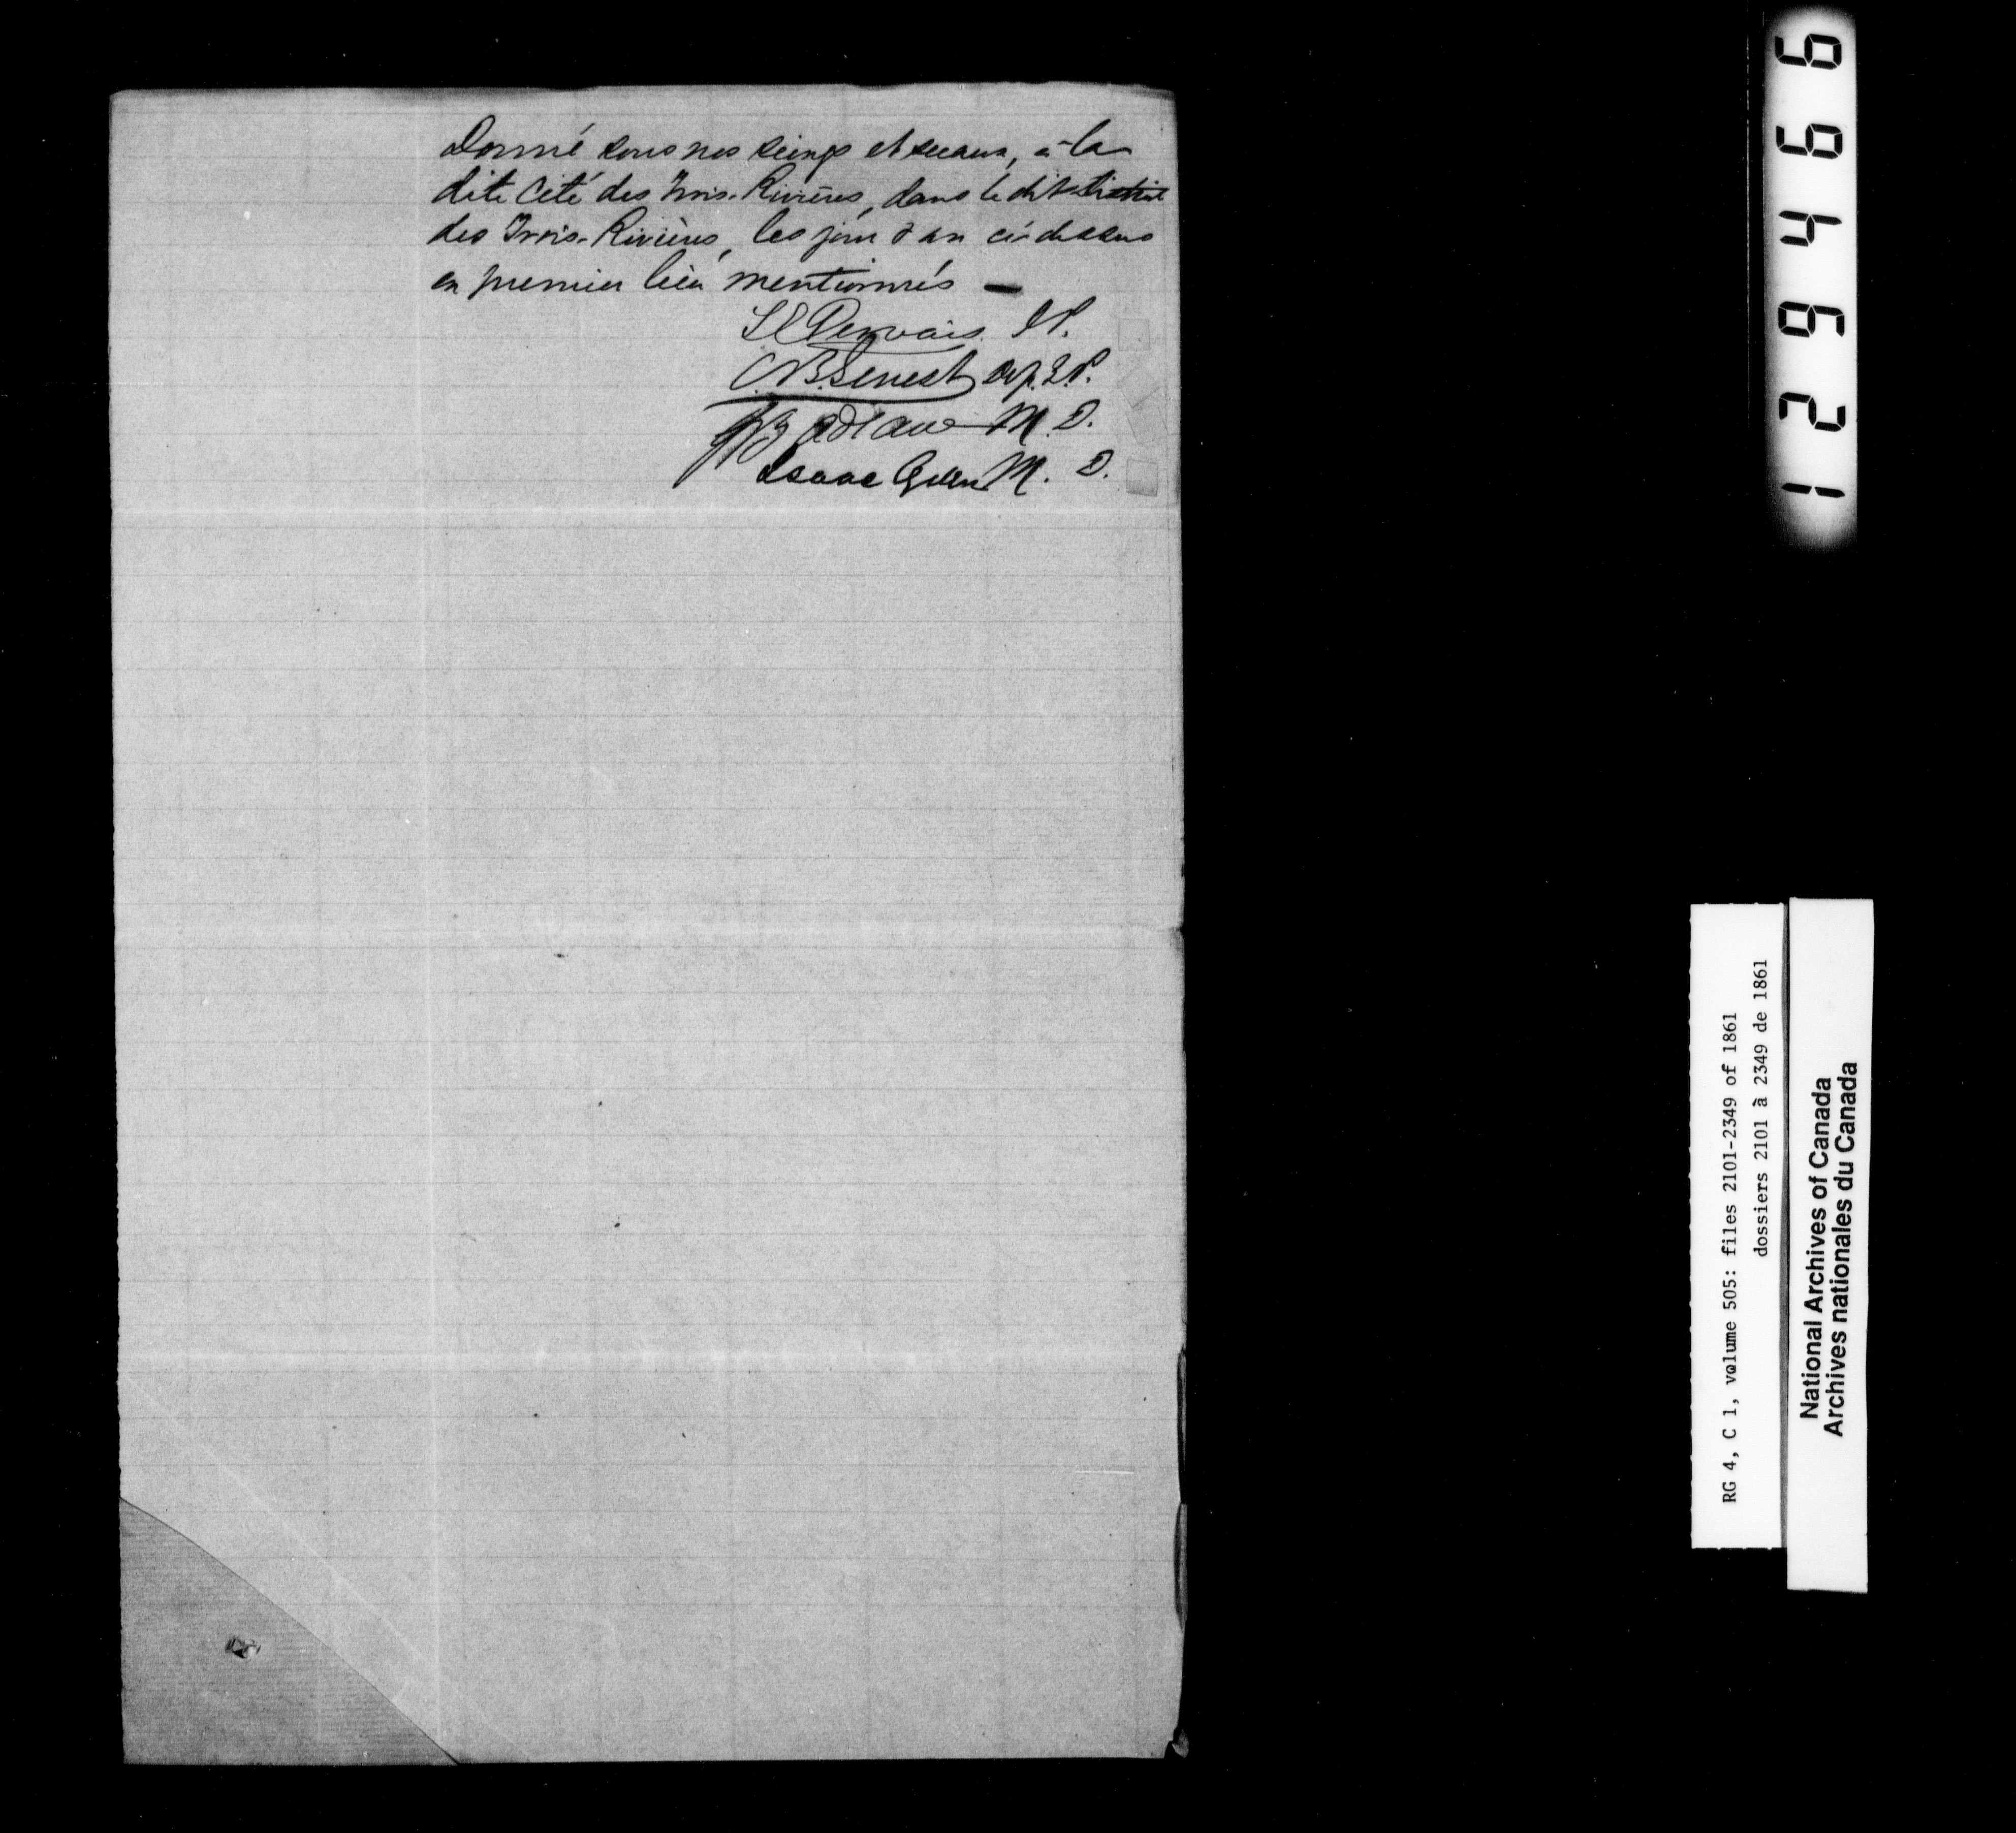 Donné sous nos seings et sceaux, à la
dite Cité des Trois-Rivières, dans le dit district
des Trois-Rivières, les jour & an ci-dessus
en premier lieu mentionnés —
Gervais J.P.
C.B. Genest J.P.
Badeaux M.D.
Isaac M.D.
129466
RG 4, C 1, volume 505: files 2101-2349 of 1861
dossiers 2101 à 2349 de 1861
National Archives of Canada
Archives nationales du Canada